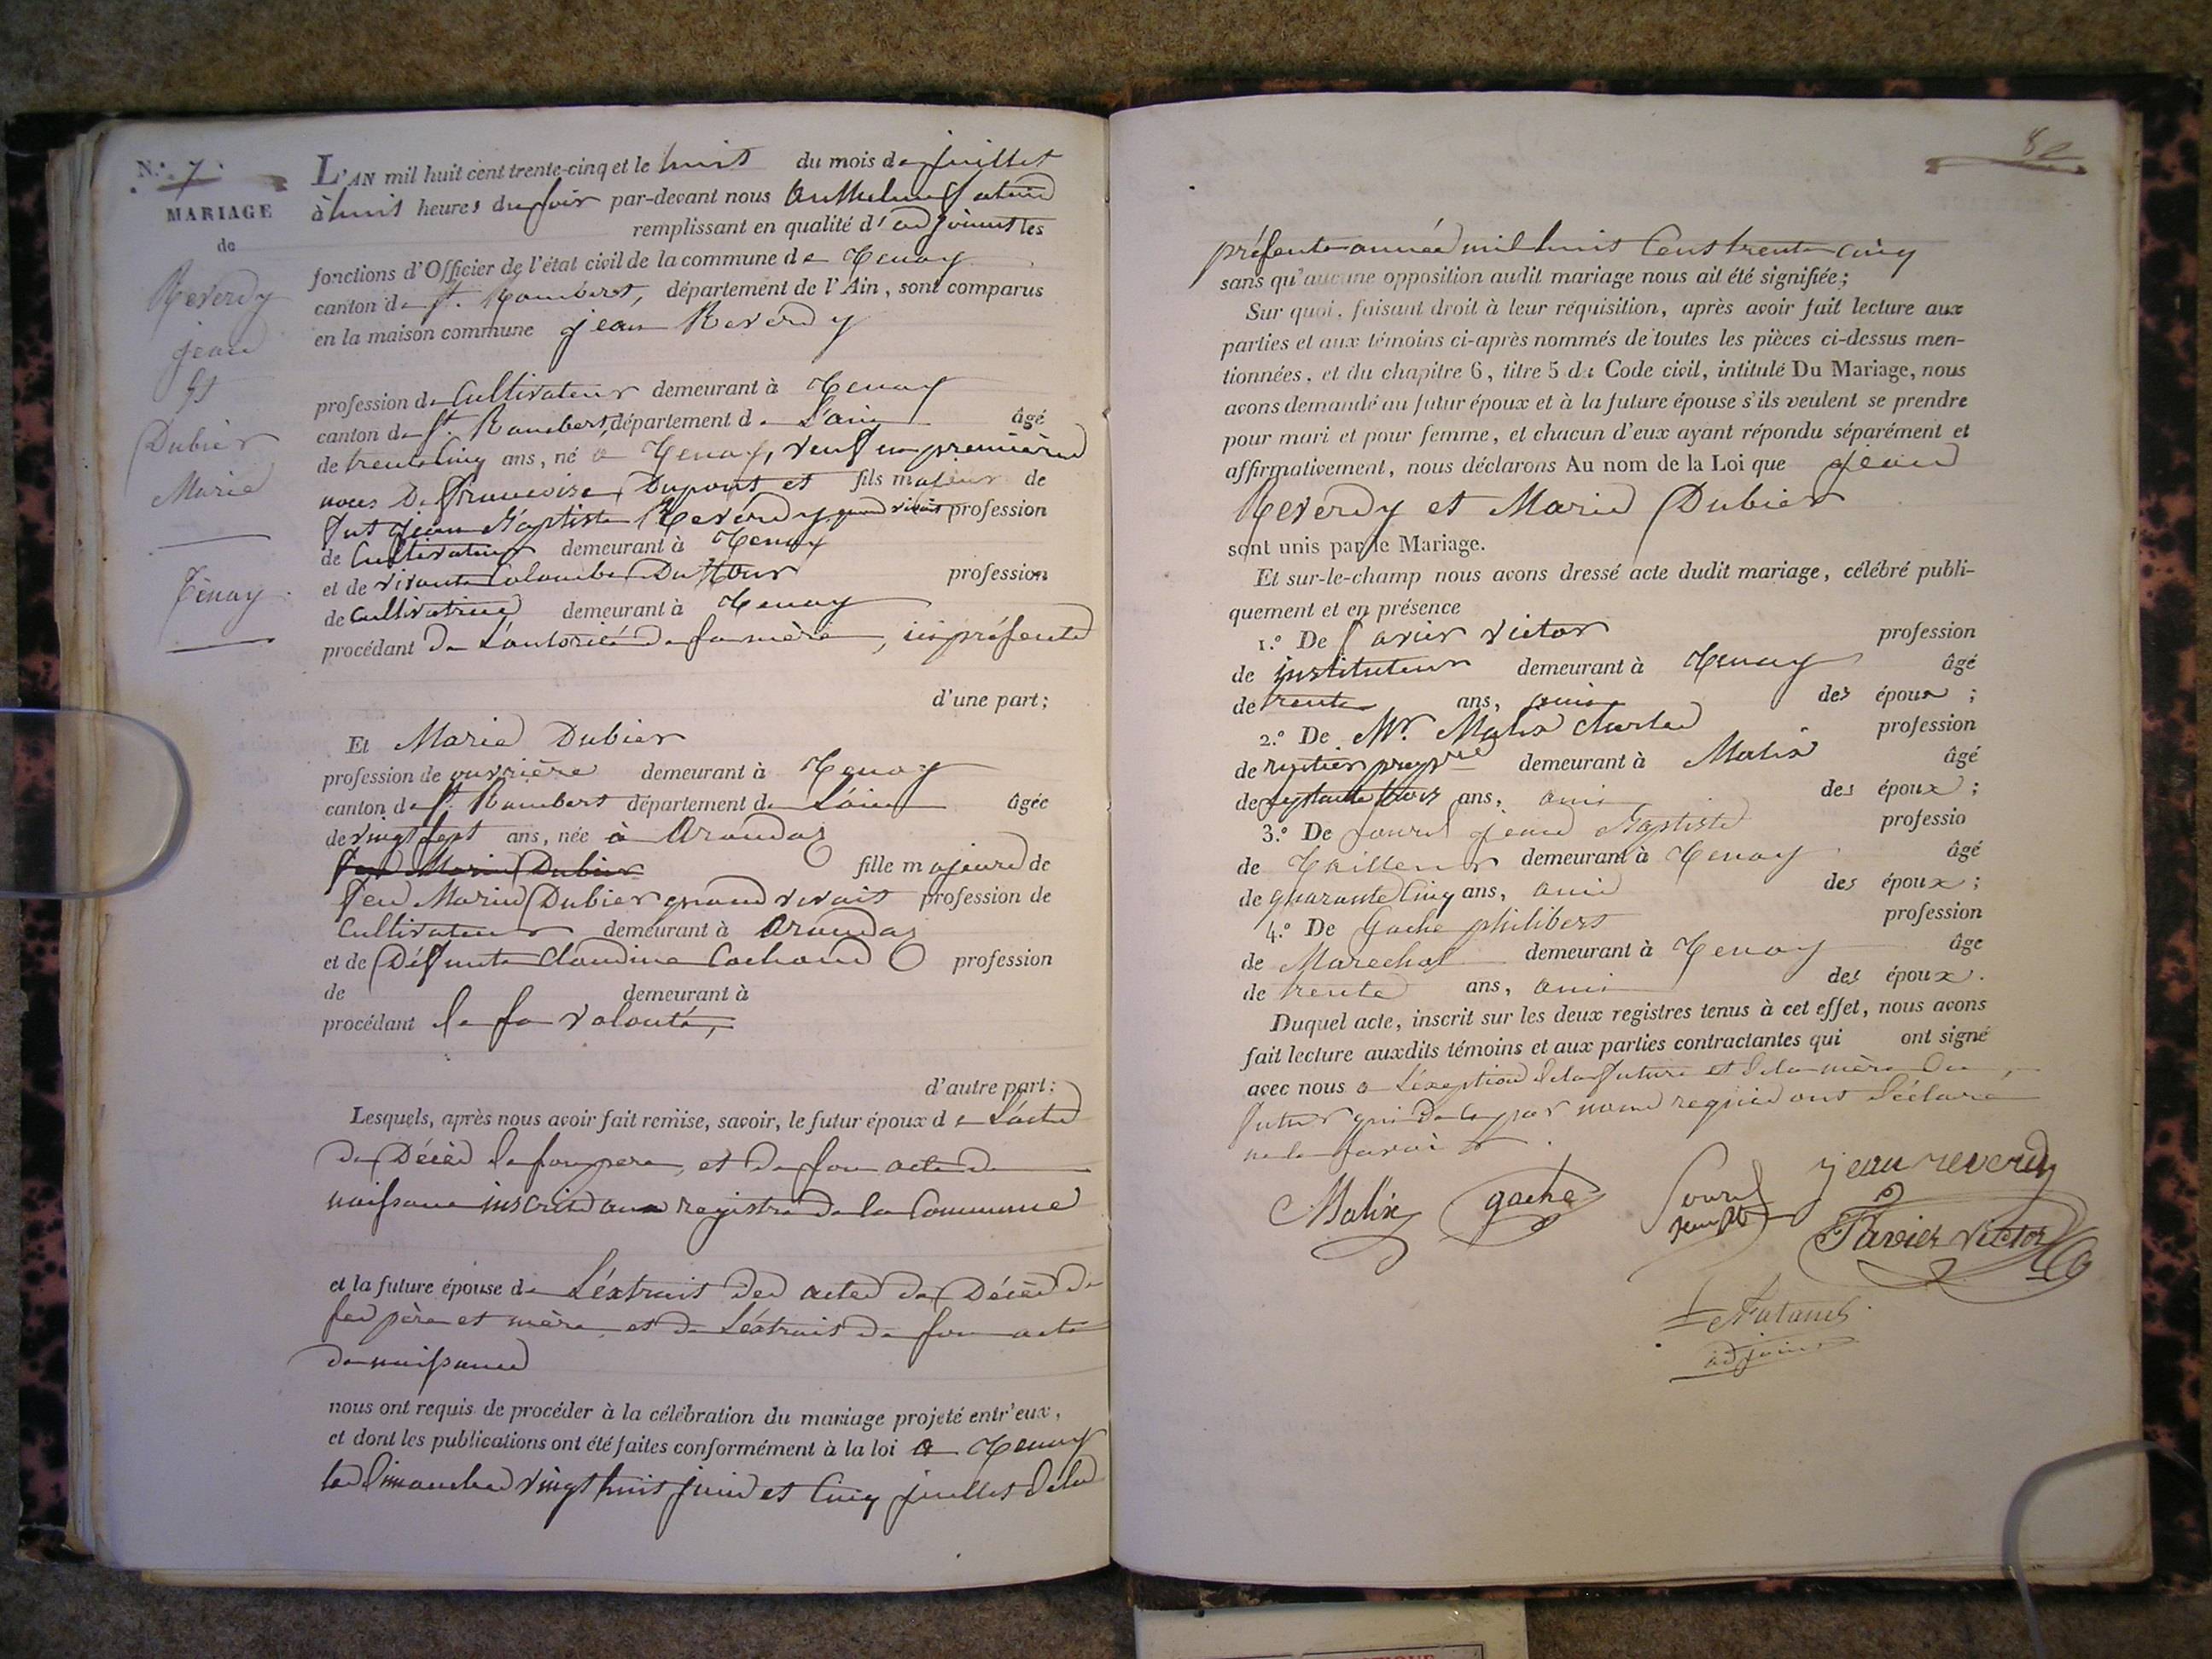 N.º 7
MARIAGE
de
Reverdy
jean
Et
Dubier
Marie
Tenay
L'AN mil huit cent trente-cinq et le huit du mois de juillet
à huit heures du soir par-devant nous
remplissant en qualité d'adjoint les
fonctions d'Officier de l'état civil de la commune de Tenay
canton de St. Rambert, département de l'Ain, sont comparus
en la maison commune jean Reverdy
profession de Cultivateur demeurant à Tenay
canton de St. Rambert, département de L'ain âgé
de trente cinq ans, né à Tenay, veuf en première
noces De francoise Dupont et fils majeur de
fut jean Baptiste Reverdy quand vivait profession
de Cultivateur demeurant à Tenay
et de vivante Colombe Dufour profession
de Cultivatrice demeurant à Tenay
procédant de L'autorité de sa mère, ici présente
d'une part;
Et Marie Dubier
profession de ouvrière demeurant à Tenay
canton de St. Rambert département de L'ain âgée
de vingt sept ans, née à Arandas
feu Marin Dubier fille majeure de
feu Marin Dubier quand vivait profession de
Cultivateur demeurant à Arandas
et de Défunte Claudine Cochand profession
de demeurant à
procédant de sa volonté,
d'autre part;
Lesquels, après nous avoir fait remise, savoir, le futur époux de L'acte
de Décès de son pere, et de son acte de
naissance inscrit aux registre de la Commune
et la future épouse de L'éxtrait des actes de Décès de
ses père et mère et de L'éxtrait de son acte
de naissance
nous ont requis de procéder à la célébration du mariage projeté entr'eux,
et dont les publications ont été faites conformément à la loi à Tenay
les dimanches vingt huit juin et Cinq juillet de la
présente année mil huit Cent trente cinq
sans qu'aucune opposition audit mariage nous ait été signifiée;
Sur quoi, faisant droit à leur réquisition, après avoir fait lecture aux
parties et aux témoins ci-après nommés de toutes les pièces ci-dessus men-
tionnées, et du chapitre 6, titre 5 du Code civil, intitulé Du Mariage, nous
avons demandé au futur époux et à la future épouse s'ils veulent se prendre
pour mari et pour femme, et chacun d'eux ayant répondu séparément et
affirmativement, nous déclarons Au nom de la Loi que jean
Reverdy et Marie Dubier
sont unis par le Mariage.
Et sur-le-champ nous avons dressé acte dudit mariage, célébré publi-
quement et en présence
1.º De Favier victor profession
de instituteur demeurant à Tenay âgé
de trente ans, ami des époux;
2.º De Mr. Malix Charles profession
de rentier demeurant à Malix âgé
de ans, ami des époux;
3.º De jean Baptiste professio
de Tailleur demeurant à Tenay âgé
de quarante Cinq ans, ami des époux;
4.º De Gache philibert profession
de Marechal demeurant à Tenay âge
de trente ans, ami des époux.
Duquel acte, inscrit sur les deux registres tenus à cet effet, nous avons
fait lecture auxdits témoins et aux parties contractantes qui ont signé
avec nous a L'éxeption de la future et de la mère du
futur qui de ce par nous requis ont déclaré
ne le savoir
Malix gache jean reverdy
Favier victor
adjoint